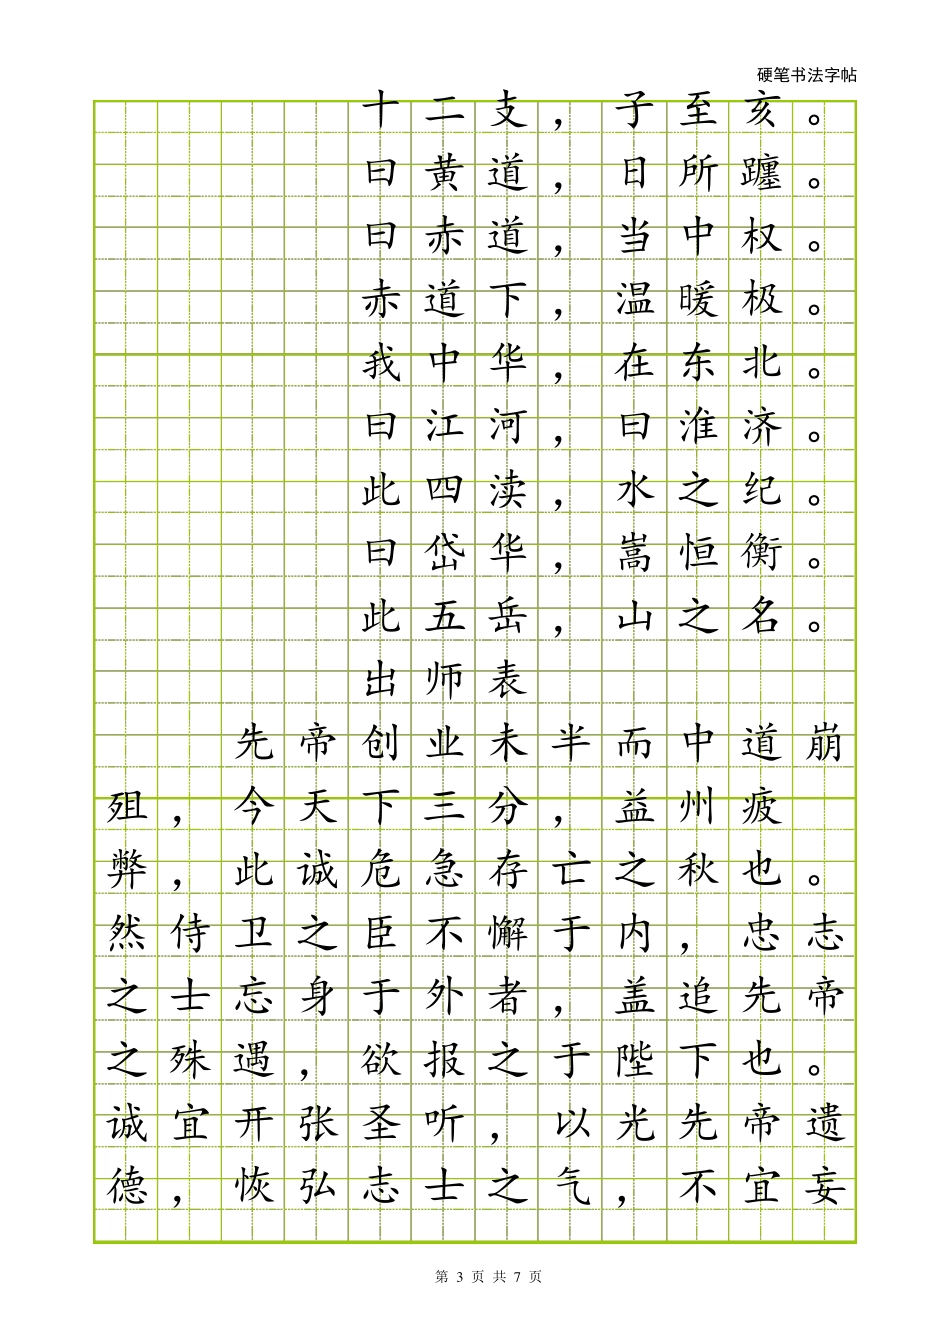 硬笔书法字帖
十二支，子至亥。
曰黄道，日所躔。
曰赤道，当中权。
赤道下，温暖极。
我中华，在东北。
曰江河，曰淮济。
此四渎，水之纪。
曰岱华，嵩恒衡。
此五岳，山之名。
出师表
先帝创业未半而中道崩
殂，今天下三分，益州疲
弊，此诚危急存亡之秋也。
然侍卫之臣不懈于内，忠志
之士忘身于外者，盖追先帝
之殊遇，欲报之于陛下也。
诚宜开张圣听，以光先帝遗
德，恢弘志士之气，不宜妄
第 3 页 共 7 页